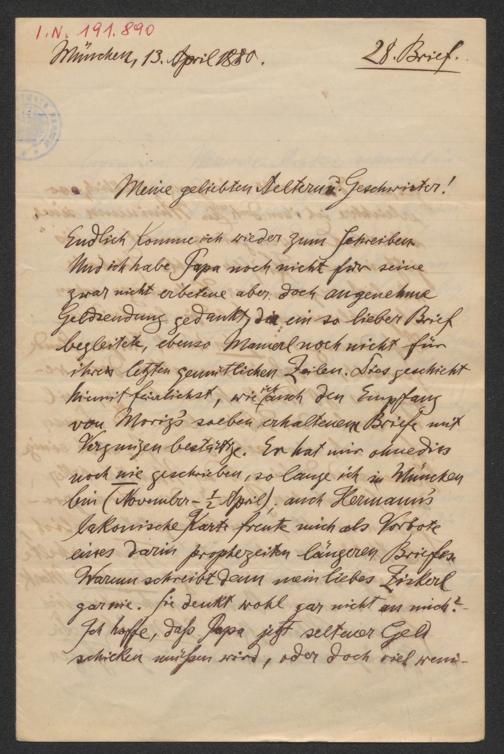 I.N. 191.890
München, 13. April 1880.
28. Brief.
Meine geliebten Aeltern u. Geschwister!
Endlich komme ich wieder zum Schreiben
Und ich habe Papa noch nicht für seine
zwar nicht erbetene aber doch angenehme
Geldsendung gedankt, die ein so lieber Brief
begleitete, ebenso Mamerl noch nicht für
ihren letzten gemütlichen Zeilen. Dies geschieht
hiemit feierlichst, wie ich auch den Empfang
von Moriz's soeben erhaltenem Briefe mit
Vergnügen bestättige. Er hat mir ohnedies
noch nie geschrieben, so lange ich in München
bin (November – ½ April), auch Hermann's
lakonische Karte freute mich als Vorbote
eines darin prophezeiten längeren Briefes.
Warum schreibt denn mein liebes
gar nie. Sie denkt wohl gar nicht an mich? –
Ich hoffe, daß Papa jetzt seltener Geld
schicken müßen wird, oder doch viel weni-